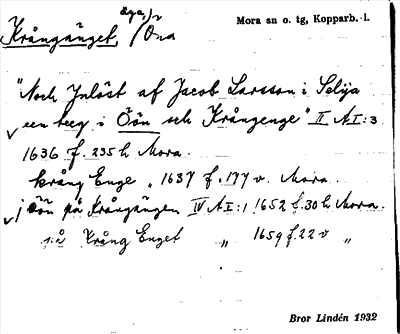 Mora sn o. tg, Kopparb. l.
äga,
Krångänget, / Öna
"Noch Inlöst af Jacob Larsson i Selja
een teeg i Öön och Krångenge" II A I: 3
1636 f. 235 h Mora.
krång Enge „ 1637 f. 177 v. Mora.
j öön på Krångängen IV A I: 1 1652 f. 30 h Mora.
på Krång Enget „ 1659 f. 22 v „
Bror Lindén 1932